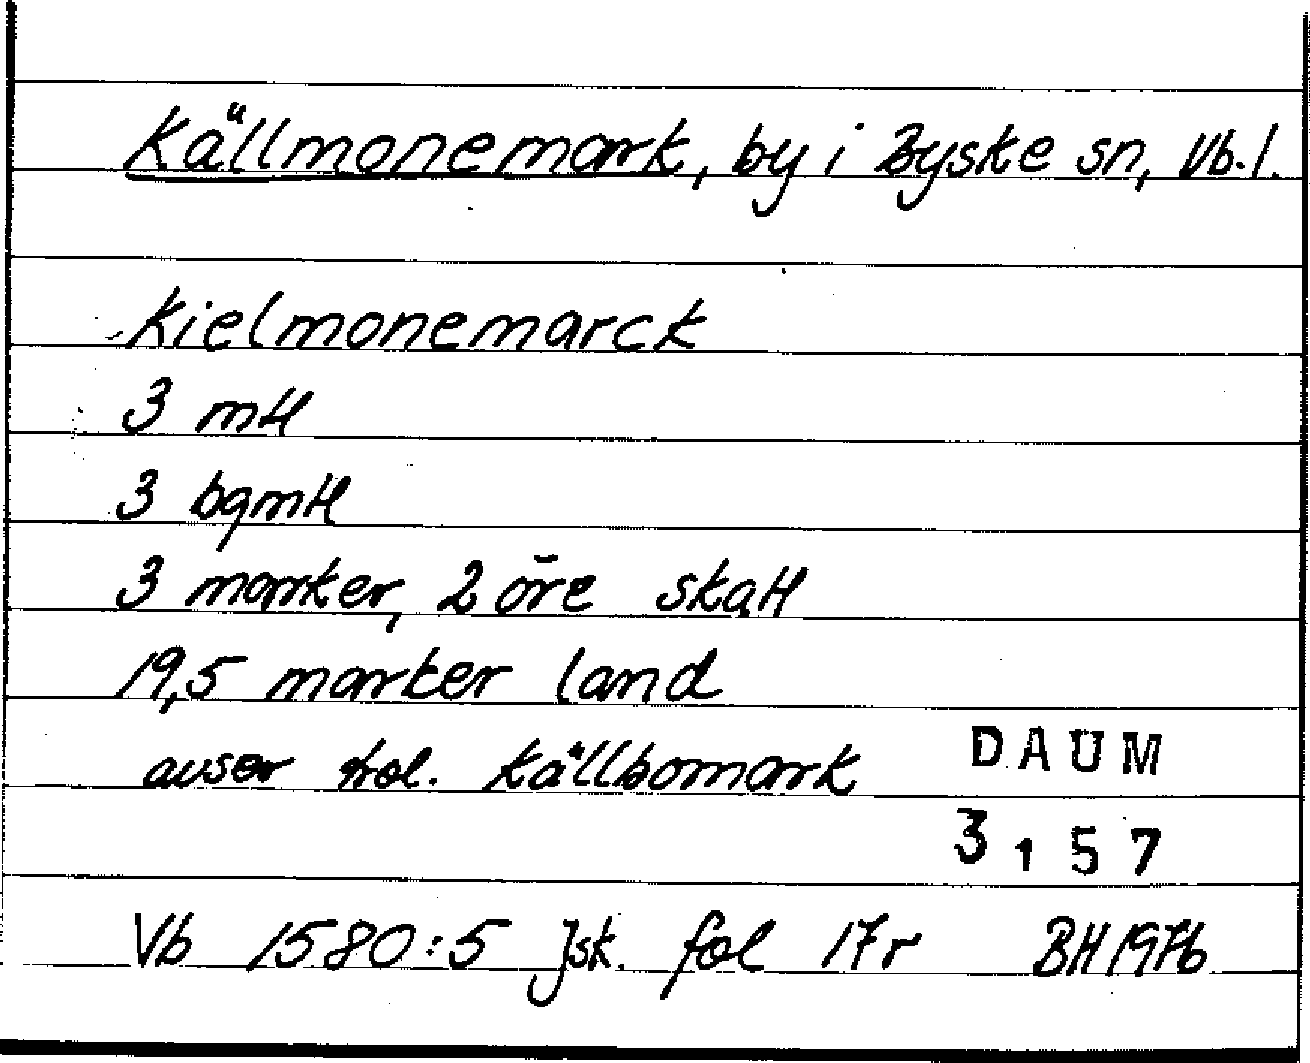 Källmonemark, by i Byske sn, Vb.l.
Kielmonemarck
3 mtl
3 bgmtl
3 marker, 2 öre skatt
19,5 marker land
avser trol. Källbomark
DAUM
3157
Vb 1580:5 Jsk. fol 17r BH 1976